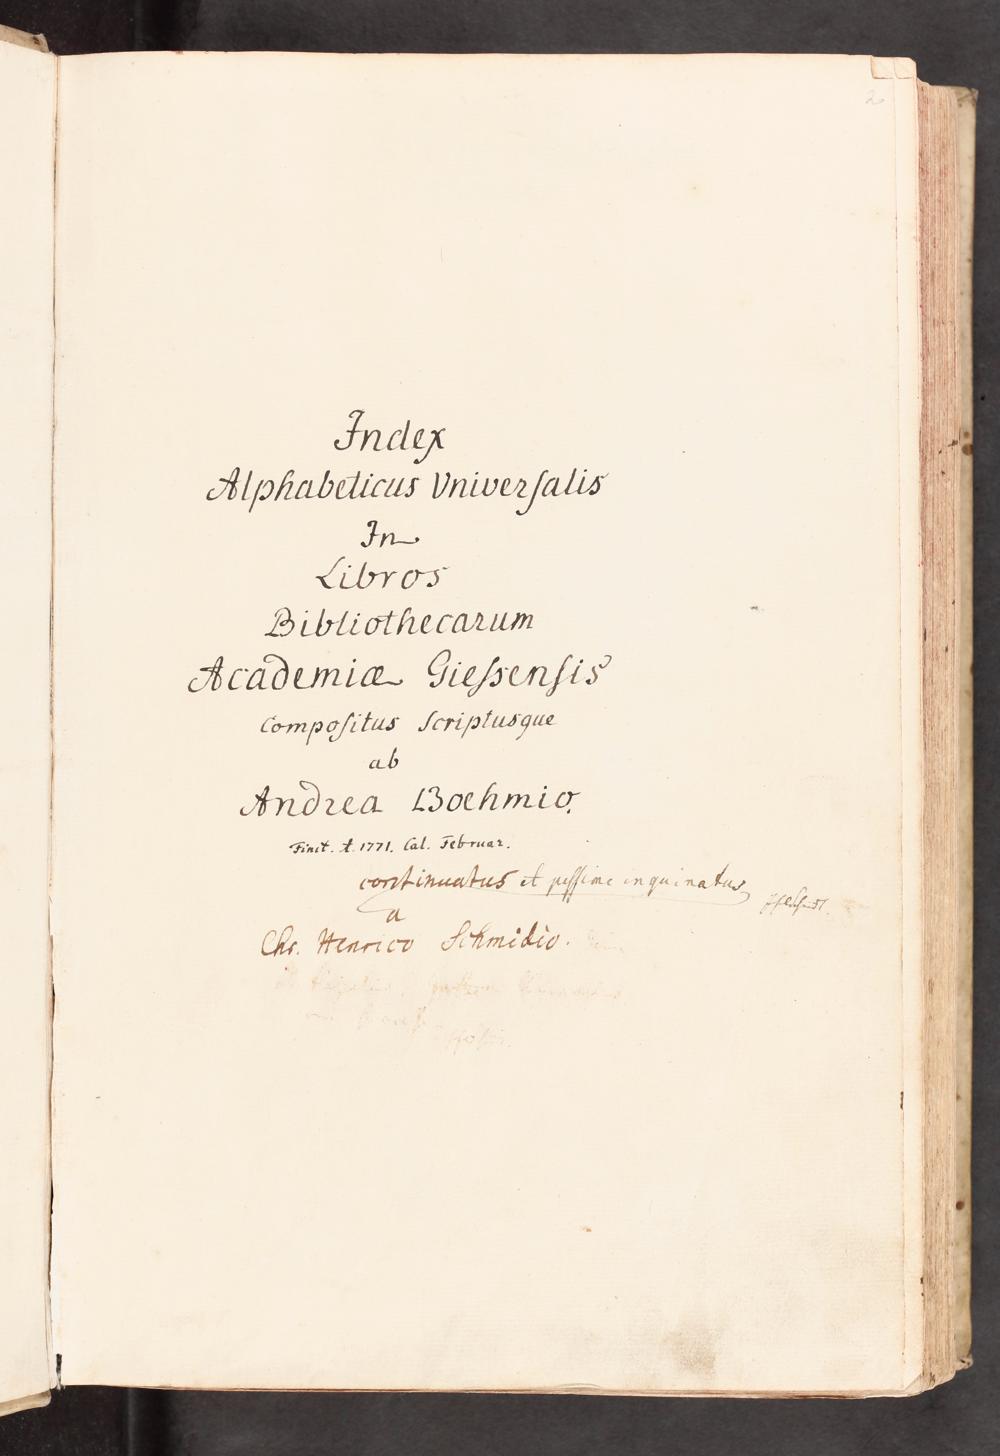 2
Index
Alphabeticus Vniverſalis
In
Libros
Bibliothecarum
Academiæ Gieſsenſis
Compoſitus Scriptusque
ab
Andrea Boehmio.
Finit. A. 1771. Cal. Februar.
continuatus et peſsime inquinatus
a
Chr. Henrico Schmidio.